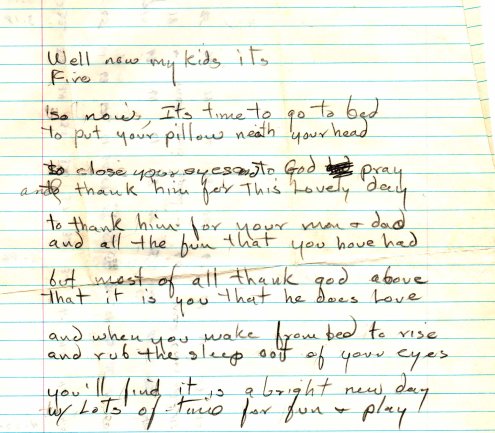 Well now my kids its
Five
so now, Its time to go to bed
to put your pillow neath your head
to close your eyes and to God pray
and thank him for This Lovely day
to thank him for your mom + dad
and all the fun that you have had
but most of all thank god above
that it is you that he does Love
and when you wake from bed to rise
and rub the sleep out of your eyes
you'll find it is a bright new day
w/ Lots of time for fun + play